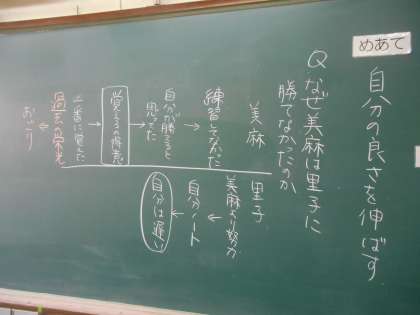 めあて
自分の良さを伸ばす
Q なぜ美麻は里子に
勝てなかったのか
美麻
練習してなかった
自分が勝てると
思ってた
覚えるの得意
一番に覚えた
過去の栄光
おごり
里子
美麻より努力
自分ノート
自分は遅い